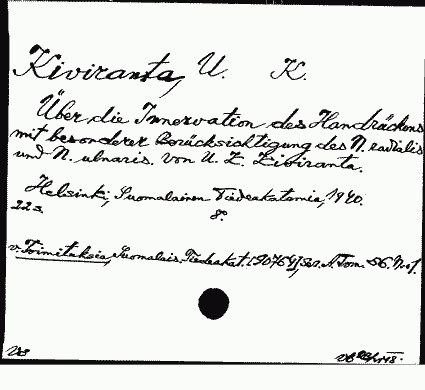 Kiviranta, U. K.
Über die Innervation des Handrückens
mit besonderer Berücksichtigung des N. radialis
und N. ulnaris. Von U. K. Kiviranta.
Helsinki, Suomalainen Tiedeakatemia, 1940.
22 s. 8°.
v. Toimituksia, Suomalais. Tiedeakat. Ser. A. Tom. 56. N:o 1.